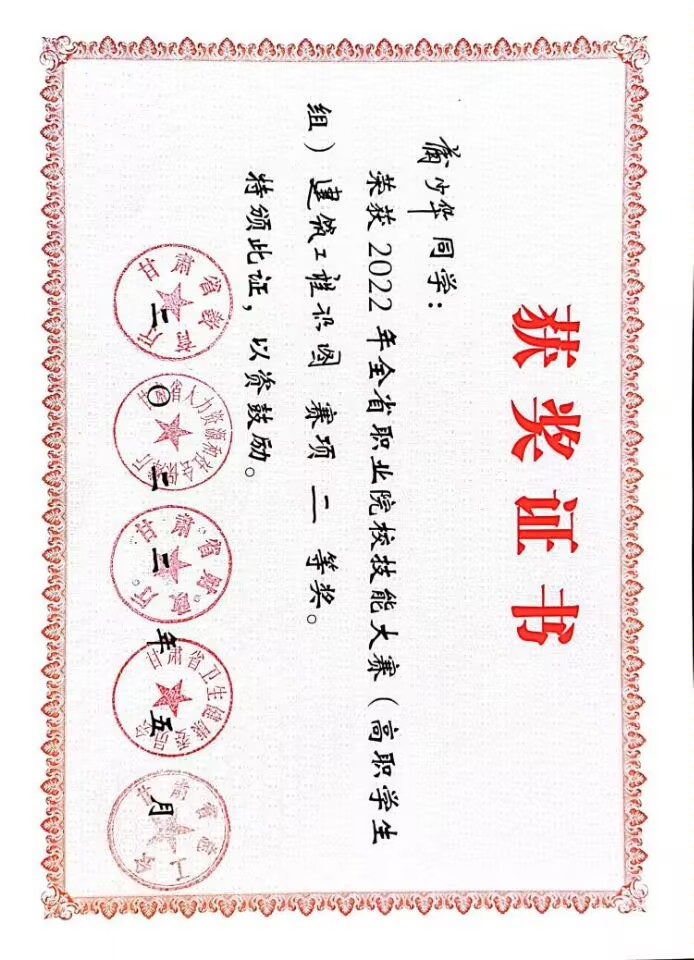 获奖证书
少华同学：
荣获2022年全省职业院校技能大赛（高职学生
组）建筑工程识图 赛项 二 等奖。
特颁此证，以资鼓励。
甘肃省教育厅
甘肃省人力资源和社会保障厅
甘肃省财政厅
甘肃省卫生健康委员会
甘肃省总工会
二〇二二年五月